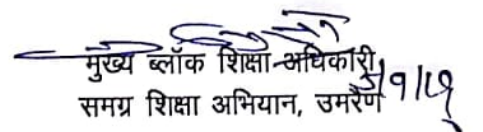 मुख्य ब्लॉक शिक्षा अधिकारी
समग्र शिक्षा अभियान, उमरैण